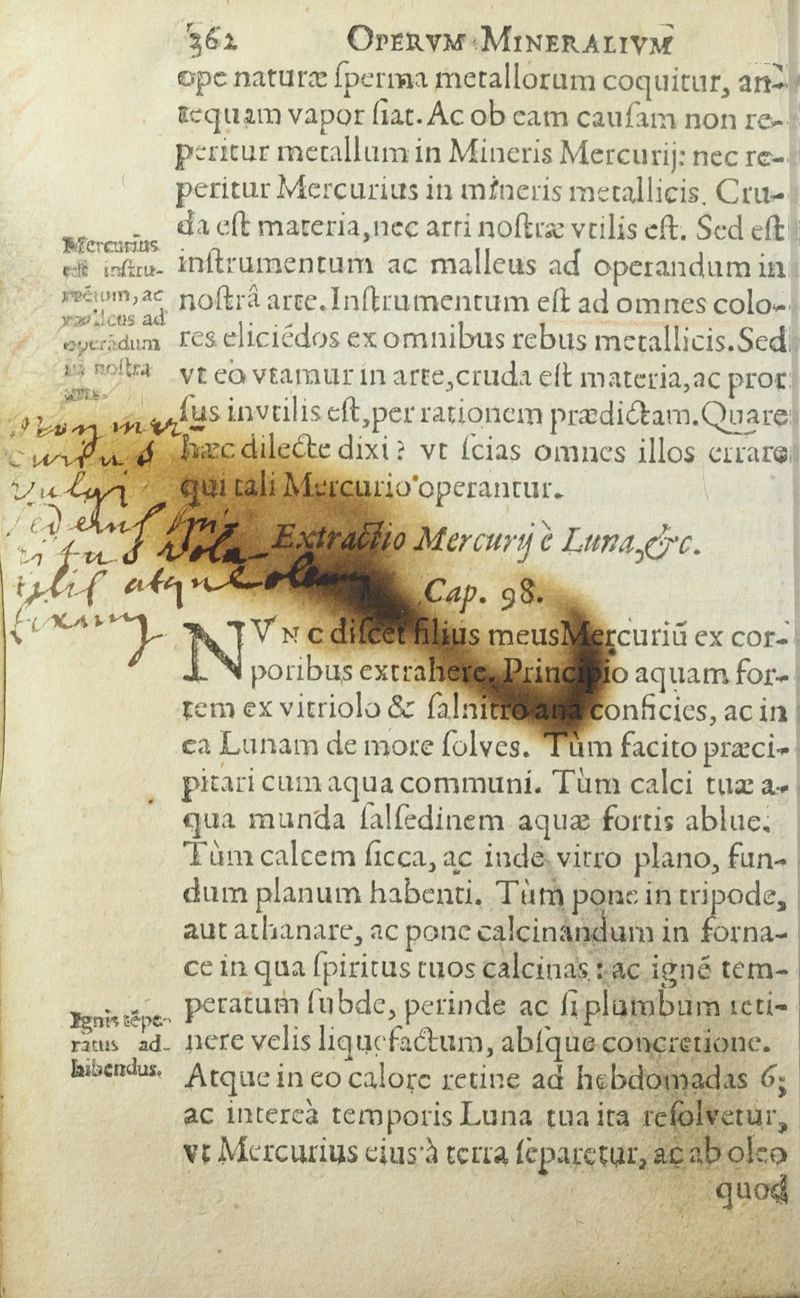 362 OPERVM MINERALIVM
ope naturæ ſperma metallorum coquitur, an-
tequam vapor fiat. Ac ob eam cauſam non re-
peritur metallum in Mineris Mercurij: nec re-
peritur Mercurius in mineris metallicis. Cru-
da eſt materia, nec arti noſtræ vtilis eſt. Sed eſt
inſtrumentum ac malleus ad operandum in
noſtrâ arte. Inſtrumentum eſt ad omnes colo-
res eliciẽdos ex omnibus rebus metallicis. Sed
vt eo vtamur in arte, cruda eſt materia, ac pror
ſus invtilis eſt, per rationem prædictam. Quare
hæc dilecte dixi? vt ſcias omnes illos errare
qui tali Mercurio operantur.
Mercurius
eſt inſtru-
mẽtum, ac
malleus ad
operãdum
in noſtra
arte.
Extractio Mercurij è Luna, &c.
Cap. 98.
NVNC diſcet filius meus Mercuriũ ex cor-
poribus extrahere. Principio aquam for-
tem ex vitriolo & ſalnitro ana conficies, ac in
ea Lunam de more ſolves. Tùm facito præci-
pitari cum aqua communi. Tùm calci tuæ a-
qua munda ſalſedinem aquæ fortis ablue.
Tùm calcem ſicca, ac inde vitro plano, fun-
dum planum habenti. Tùm pone in tripode,
aut athanare, ac pone calcinandum in forna-
ce in qua ſpiritus tuos calcinas: ac ignẽ tem-
peratum ſubde, perinde ac ſi plumbum reti-
nere velis liquefactum, abſque concretione.
Atque in eo calore retine ad hebdomadas 6;
ac intereà temporis Luna tua ita reſolvetur,
vt Mercurius eius à terra ſeparetur, ac ab oleo
quod
Ignis tẽpe-
ratus ad-
hibendus.